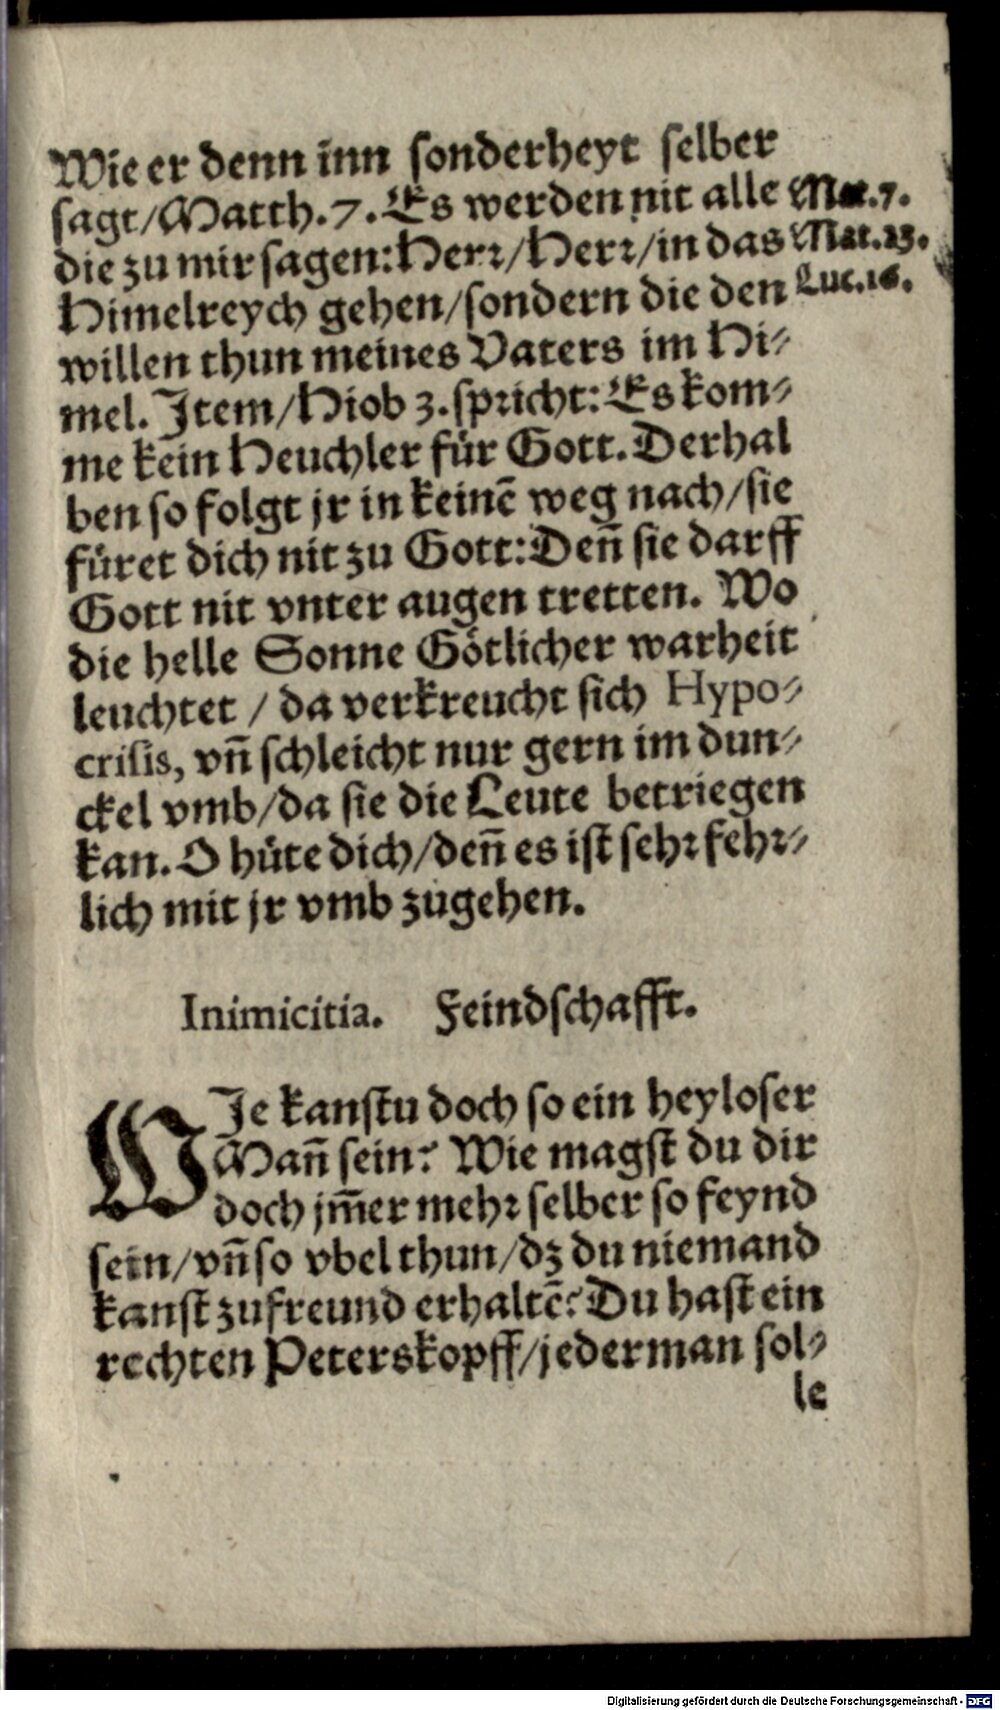 Wie er denn inn sonderheyt selber
sagt/Matth. 7. Es werden nit alle
die zu mir sagen: Herr/Herr/in das
Himelreych gehen/sondern die den
willen thun meines Vaters im Hi-
mel. Item/Hiob 3. spricht: Es kom-
me kein Heuchler für Gott. Derhal
ben so folgt jr in keinē weg nach/sie
füret dich nit zu Gott: Deñ sie darff
Gott nit vnter augen tretten. Wo
die helle Sonne Götlicher warheit
leuchtet / da verkreucht sich Hypo-
crisis, vñ schleicht nur gern im dun-
ckel vmb/da sie die Leute betriegen
kan. O hüte dich/deñ es ist sehr fehr-
lich mit jr vmb zugehen.
Mat. 7.
Mat. 23.
Luc. 16.
Inimicitia. Feindschafft.
WIe kanstu doch so ein heyloser
Mañ sein? Wie magst du dir
doch jm̄er mehr selber so feynd
sein/vñ so vbel thun/dz du niemand
kanst zu freund erhaltē? Du hast ein
rechten Peterskopff/jederman sol-
le
Digitalisierung gefördert durch die Deutsche Forschungsgemeinschaft - DFG